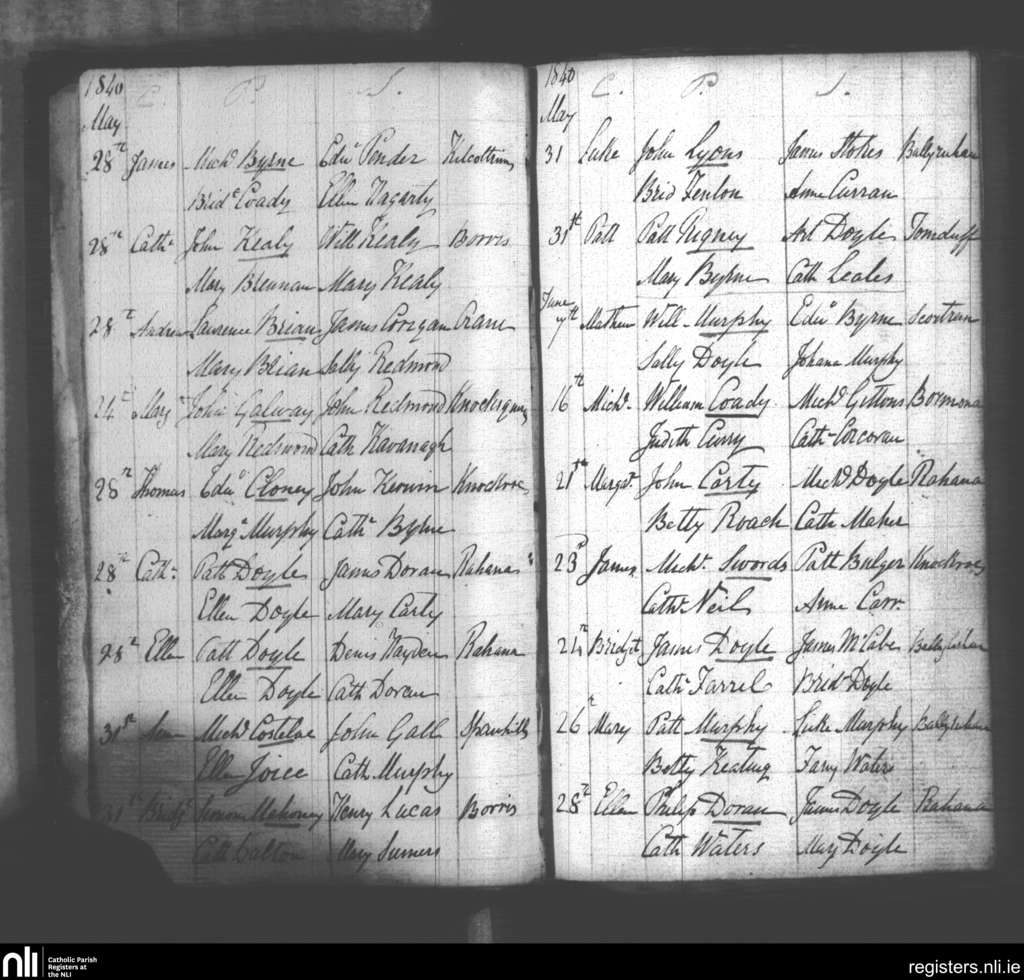 1840
C. P. S.
May
28th James Michd Byrne Edwd Pender Kilcoltrim
Bridt Coady Ellen Hagarty
28th Cathe John Kealy Will Kealy Borris
Mary Brennan Mary Kealy
28th Andrew Laurence Brian James Corrigan Crane
Mary Brian Sally Redmond
24th Margt John Galway John Redmond
Mary Redmond Cath Kavanagh
28th Thomas Edwd Cloney John Knockroe
Margt Murphy Cathe Byrne
28th Cathe Patk Doyle James Doran Rahana
Ellen Doyle Mary Carty
28th Ellen Patt Doyle Denis Hayden Rahana
Ellen Doyle Cath Doran
31st Anne Michd Costeloe John Gall Spahill
Ellen Joice Cath Murphy
31st Bridgt Simon Mahoney Henry Lucas Borris
Cath Dalton Mary Sumers
1840
C. P. S.
May
31 Luke John Lyons James Stokes Ballyenhan
Brid Fenlon Anne Curran
31st Patt Patt Rigney Art Doyle Tomduff
Mary Byrne Cath Leales
June
7th Mathew Will Murphy Edwd Byrne
Sally Doyle Johana Murphy
16th Michd William Coady Michd Gittons Bormona
Judith Curry Cath Corcoran
21st Margat John Carty Michd Doyle Rahana
Betty Roach Cath Maher
23d James Michl Swords Patt Bulger Knockroe
Cathe Neil Anne Carr
24th Bridgt James Doyle James McCabe
Cathe Farrel Bridt Doyle
26th Mary Patt Murphy Luke Murphy Ballyenhan
Betty Keating Fany Waters
28th Ellen Philip Doran James Doyle Rahana
Cath Waters Mary Doyle
nli
Catholic Parish
Registers at
the NLI
registers.nli.ie